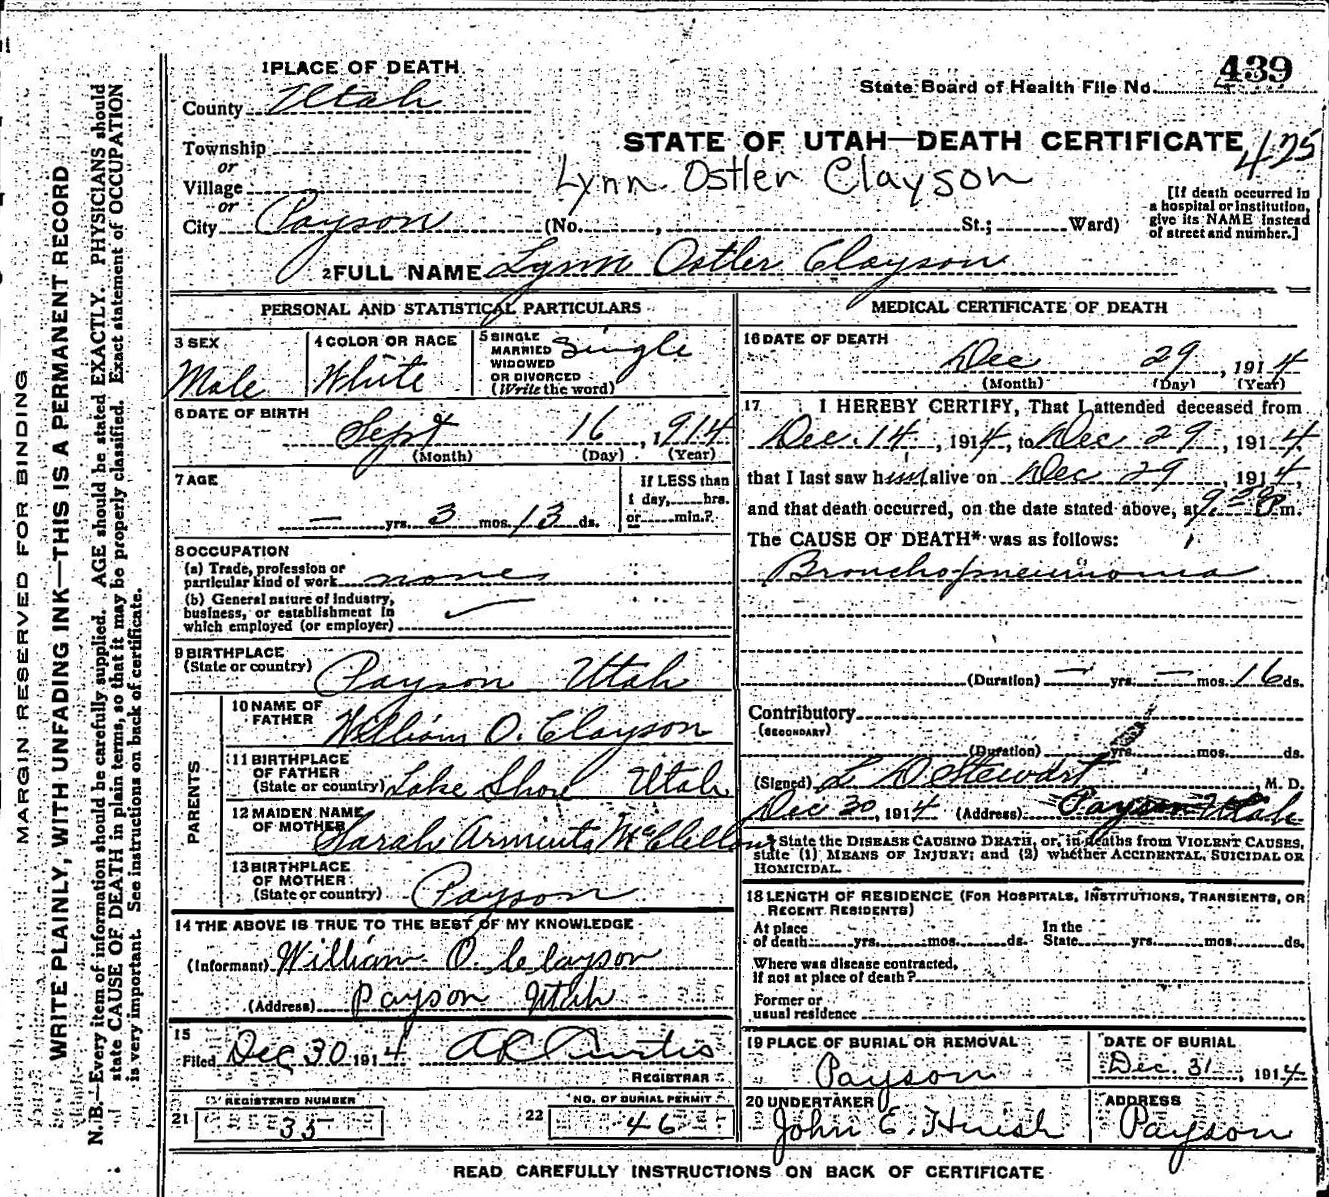 439
State Board of Health File No.
1 PLACE OF DEATH
County Utah
STATE OF UTAH—DEATH CERTIFICATE 425
Township
or
Village
Lynn Ostler Clayson
[If death occurred in
a hospital or institution,
give its NAME instead
of street and number.]
or
City Payson (No. , St.; Ward)
2 FULL NAME Lynn Ostler Clayson
PERSONAL AND STATISTICAL PARTICULARS
3 SEX
Male
4 COLOR OR RACE
White
5 SINGLE
MARRIED
WIDOWED
OR DIVORCED
(Write the word)
Single
6 DATE OF BIRTH
Sept 16, 1914
(Month) (Day) (Year)
7 AGE
— yrs. 3 mos. 13 ds.
If LESS than
1 day, hrs.
or min.?
8 OCCUPATION
(a) Trade, profession or
particular kind of work none
(b) General nature of industry,
business, or establishment in
which employed (or employer)
9 BIRTHPLACE
(State or country) Payson Utah
PARENTS
10 NAME OF
FATHER William O. Clayson
11 BIRTHPLACE
OF FATHER
(State or country) Lake Shore Utah
12 MAIDEN NAME
OF MOTHER Sarah Arminta McClellan
13 BIRTHPLACE
OF MOTHER
(State or country) Payson
14 THE ABOVE IS TRUE TO THE BEST OF MY KNOWLEDGE
(Informant) William O. Clayson
(Address) Payson Utah
15
Filed Dec 30 1914 Curtis
REGISTRAR
21 REGISTERED NUMBER
35
22 NO. OF BURIAL PERMIT
46
MEDICAL CERTIFICATE OF DEATH
16 DATE OF DEATH
Dec 29, 1914
(Month) (Day) (Year)
17 I HEREBY CERTIFY, That I attended deceased from
Dec. 14, 1914, to Dec 29, 1914,
that I last saw him alive on Dec 29, 1914,
and that death occurred, on the date stated above, at m.
The CAUSE OF DEATH* was as follows:
Bronchopneumonia
(Duration) — yrs. — mos. 16 ds.
Contributory
(SECONDARY)
(Duration) yrs. mos. ds.
(Signed) L D Stewart M. D.
Dec 30, 1914 (Address) Payson Utah
* State the DISEASE CAUSING DEATH, or, in deaths from VIOLENT CAUSES,
state (1) MEANS OF INJURY; and (2) whether ACCIDENTAL, SUICIDAL OR
HOMICIDAL.
18 LENGTH OF RESIDENCE (FOR HOSPITALS, INSTITUTIONS, TRANSIENTS, OR
RECENT RESIDENTS)
At place
of death yrs. mos. ds.
In the
State yrs. mos. ds.
Where was disease contracted,
if not at place of death?
Former or
usual residence
19 PLACE OF BURIAL OR REMOVAL
Payson
DATE OF BURIAL
Dec. 31, 1914
20 UNDERTAKER
John E. Huish
ADDRESS
Payson
READ CAREFULLY INSTRUCTIONS ON BACK OF CERTIFICATE
MARGIN RESERVED FOR BINDING
WRITE PLAINLY, WITH UNFADING INK—THIS IS A PERMANENT RECORD
N. B.—Every item of information should be carefully supplied. AGE should be stated EXACTLY. PHYSICIANS should
state CAUSE OF DEATH in plain terms, so that it may be properly classified. Exact statement of OCCUPATION
is very important. See instructions on back of certificate.